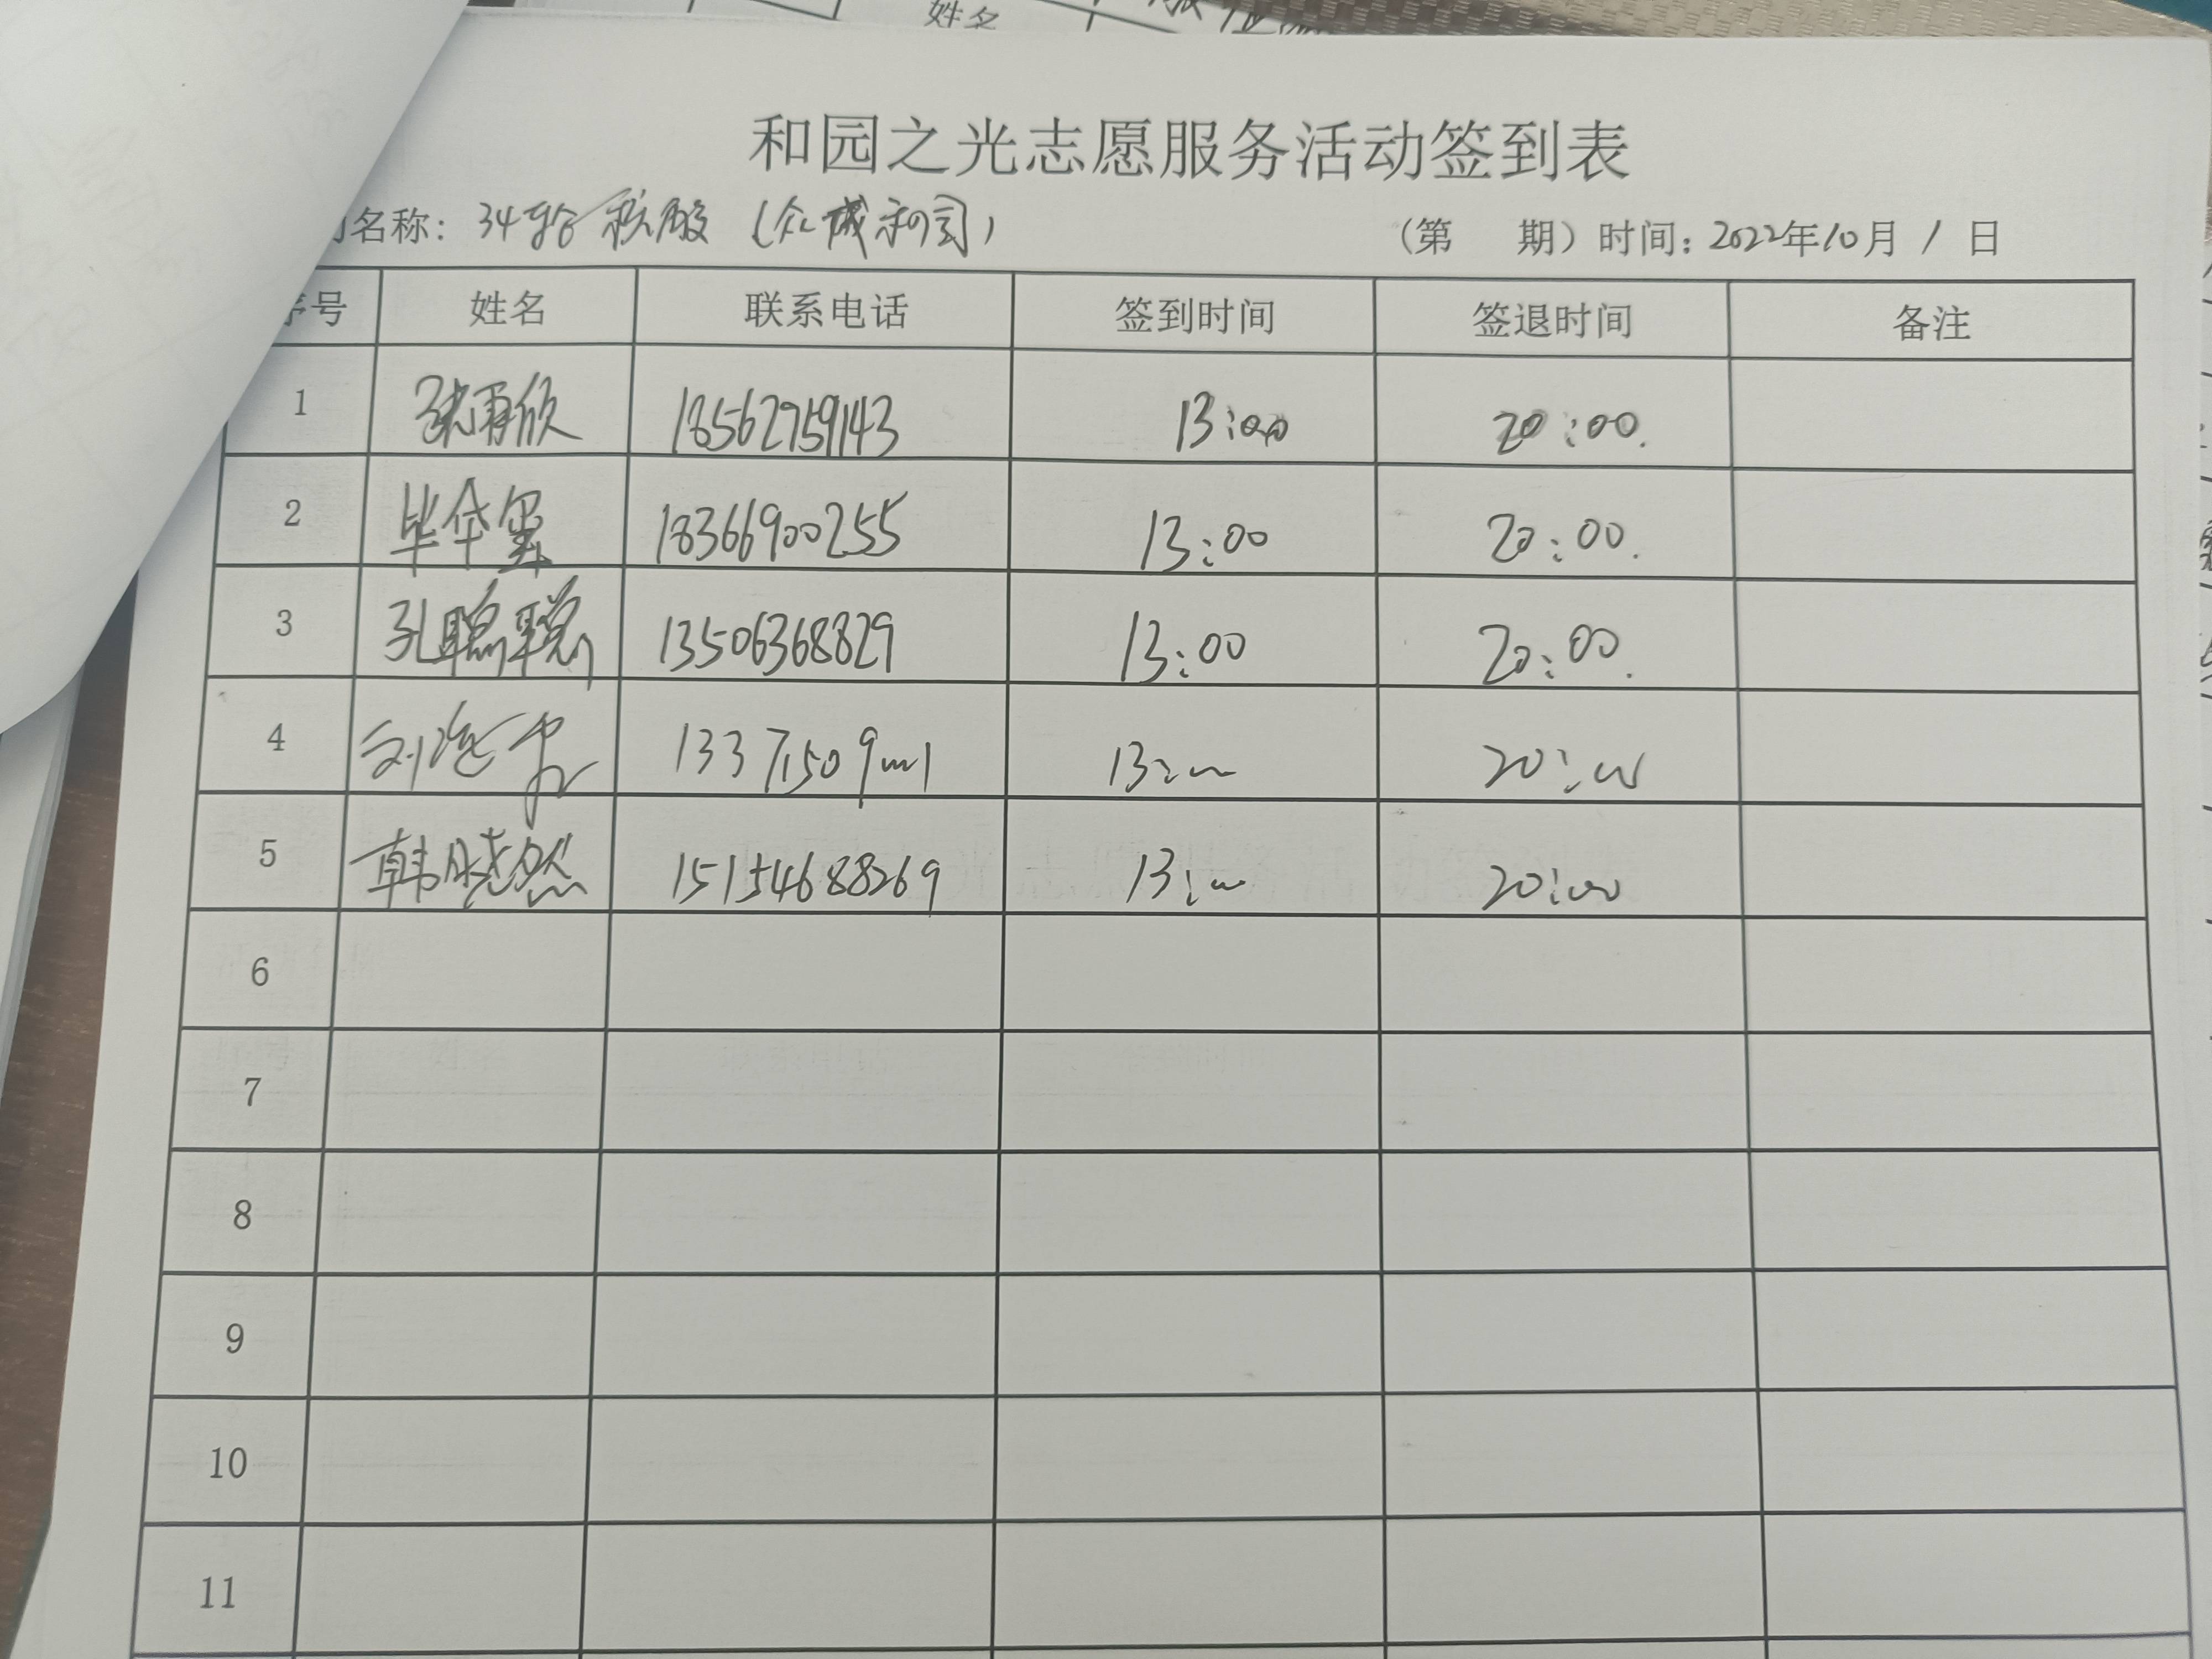 姓名
和园之光志愿服务活动签到表
名称：34轮核酸（众成利司）
（第 期）时间：2022年10月1日
序号 姓名 联系电话 签到时间 签退时间 备注
1 张再欣 18562759143 13:00 20:00.
2 毕华玺 18366900255 13:00 20:00.
3 孔聪聪 13506368829 13:00 20:00.
4 刘 13371509001 13:00 20:00
5 韩晓然 15154688269 13:00 20:00
6
7
8
9
10
11